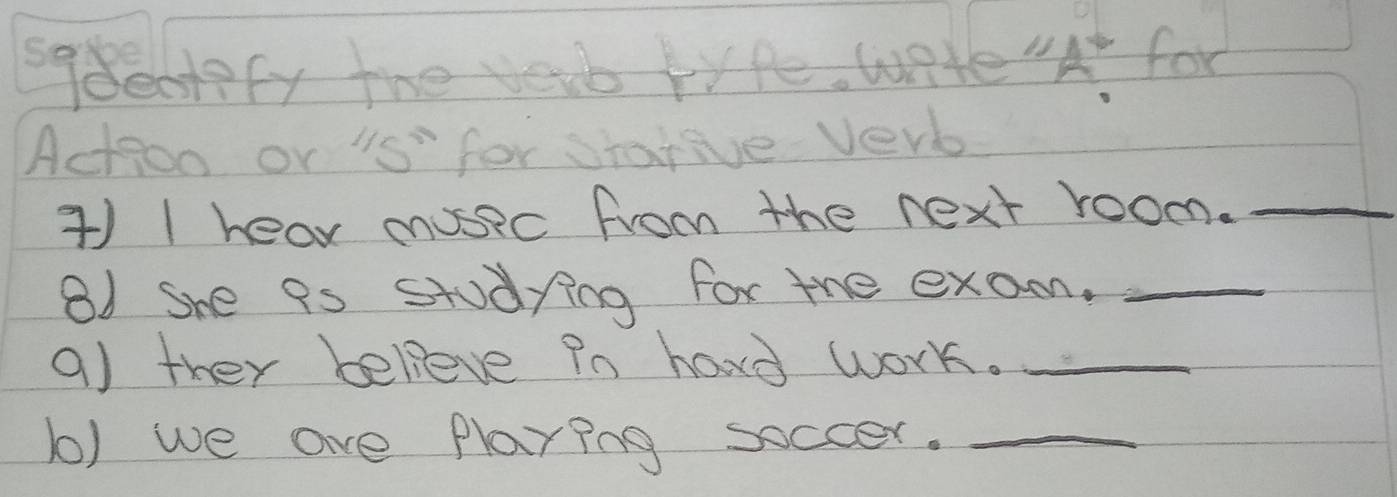 Identify the verb type. Write "A" for
Action or "S" for Stative Verb
7) I hear music from the next room.
8) She is studying for the exam.
9) they believe in hard work.
10) we are playing soccer.